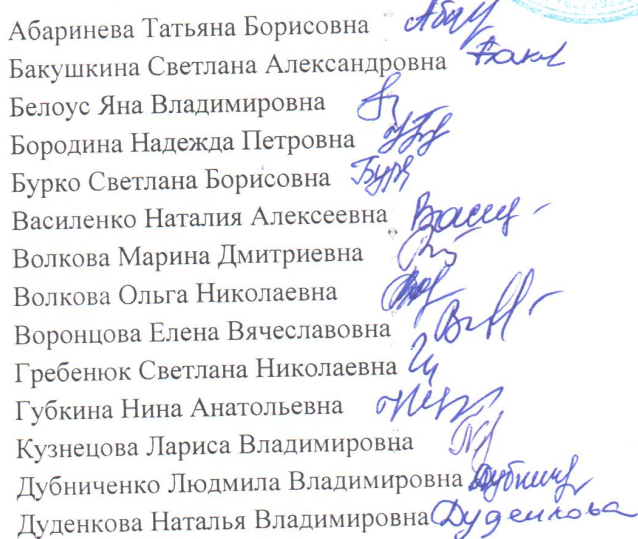 Абаринева Татьяна Борисовна
Бакушкина Светлана Александровна
Белоус Яна Владимировна
Бородина Надежда Петровна
Бурко Светлана Борисовна
Василенко Наталия Алексеевна
Волкова Марина Дмитриевна
Волкова Ольга Николаевна
Воронцова Елена Вячеславовна
Гребенюк Светлана Николаевна
Губкина Нина Анатольевна
Кузнецова Лариса Владимировна
Дубниченко Людмила Владимировна
Дуденкова Наталья Владимировна Дуденкова